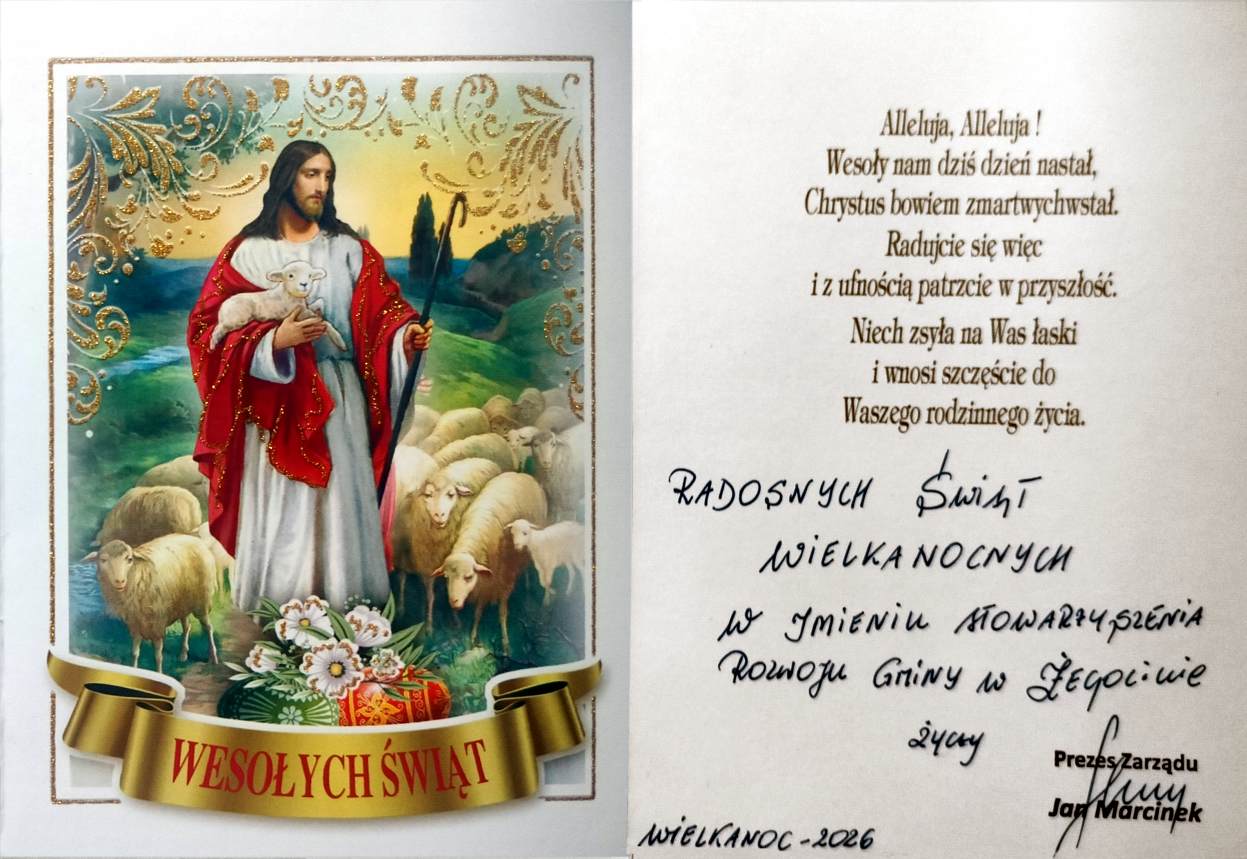 WESOŁYCH ŚWIĄT
Alleluja, Alleluja !
Wesoły nam dziś dzień nastał,
Chrystus bowiem zmartwychwstał.
Radujcie się więc
i z ufnością patrzcie w przyszłość.
Niech zsyła na Was łaski
i wnosi szczęście do
Waszego rodzinnego życia.
RADOSNYCH ŚWIĄT
WIELKANOCNYCH
W IMIENIU STOWARZYSZENIA
ROZWOJU GMINY W ŻEGOCINIE
życzy
Prezes Zarządu
Jan Marcinek
WIELKANOC - 2026